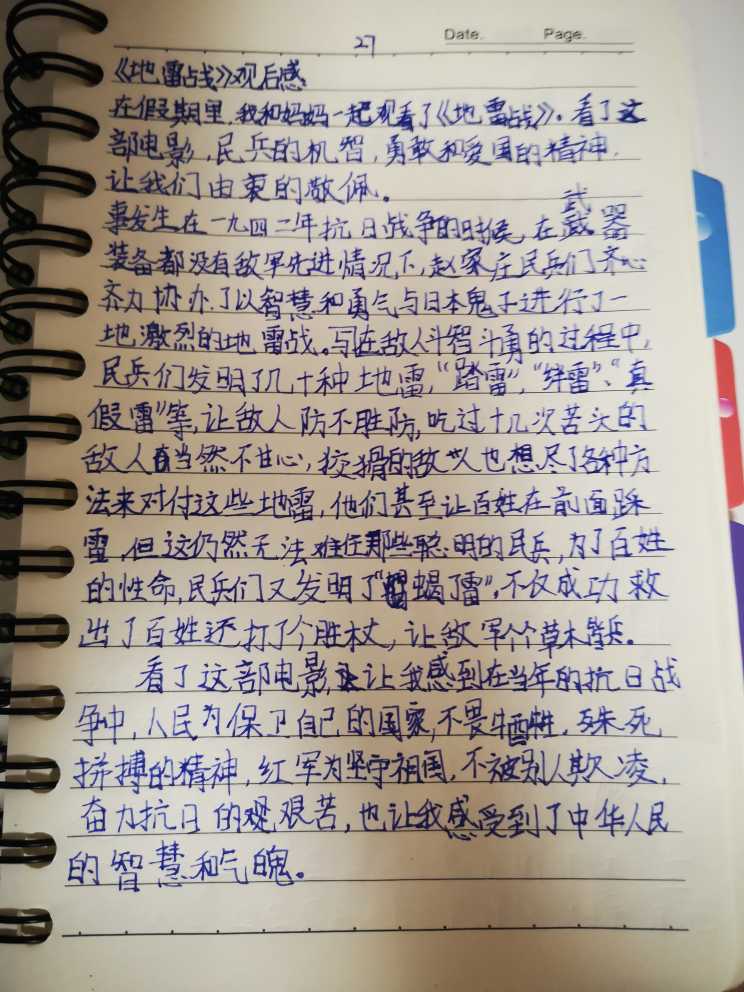 27
Date. Page.
《地雷战》观后感
在假期里,我和妈妈一起观看了《地雷战》。看了这
部电影,民兵的机智,勇敢和爱国的精神,
让我们由衷的敬佩。
武
事发生在一九四二年抗日战争的时候,在 器
装备都没有敌军先进情况下,赵家庄民兵们齐心
齐力协办了以智慧和勇气与日本鬼子进行了一
地激烈的地雷战。与在敌人斗智斗勇的过程中,
民兵们发明了几十种地雷,“踏雷”,“绊雷”、“真
假雷”等,让敌人防不胜防,吃过十几次苦头的
敌人当然不甘心,狡猾的敌人也想尽了各种方
法来对付这些地雷,他们甚至让百姓在前面踩
雷,但这仍然无法难住那些聪明的民兵,为了百姓
的性命,民兵们又发明了“蝎了雷”,不仅成功救
出了百姓还打了个胜杖,让敌军个个草木皆兵。
看了这部电影,让我感到在当年的抗日战
争中,人民为保卫自己的国家,不畏牺牲,殊死
拼搏的精神,红军为坚守祖国,不被别人欺凌,
奋力抗日的艰苦,也让我感受到了中华人民
的智慧和气魄。